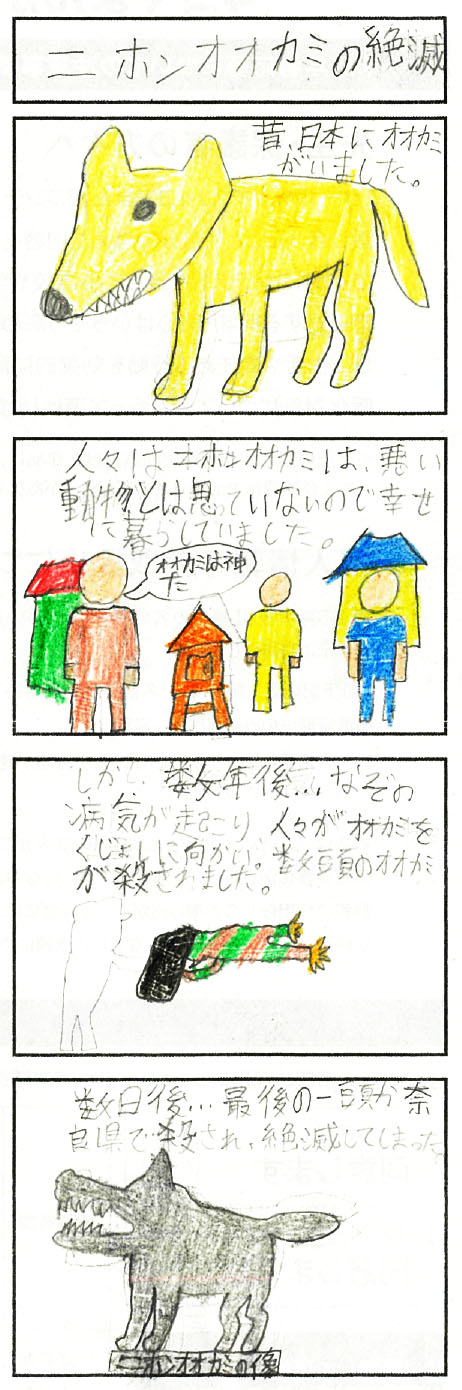 ニホンオオカミの絶滅
昔、日本にオオカミ
がいました。
人々はニホンオオカミは、悪い
動物とは思っていないので幸せ
に暮らしていました。
オオカミは神
だ
しかし、数年後…なぞの
病気が起こり、人々がオオカミを
くじょいに向かい。数頭のオオカミ
が殺されました。
数日後…最後の一頭が奈
良県で殺され、絶滅してしまった。
ニホンオオカミの像